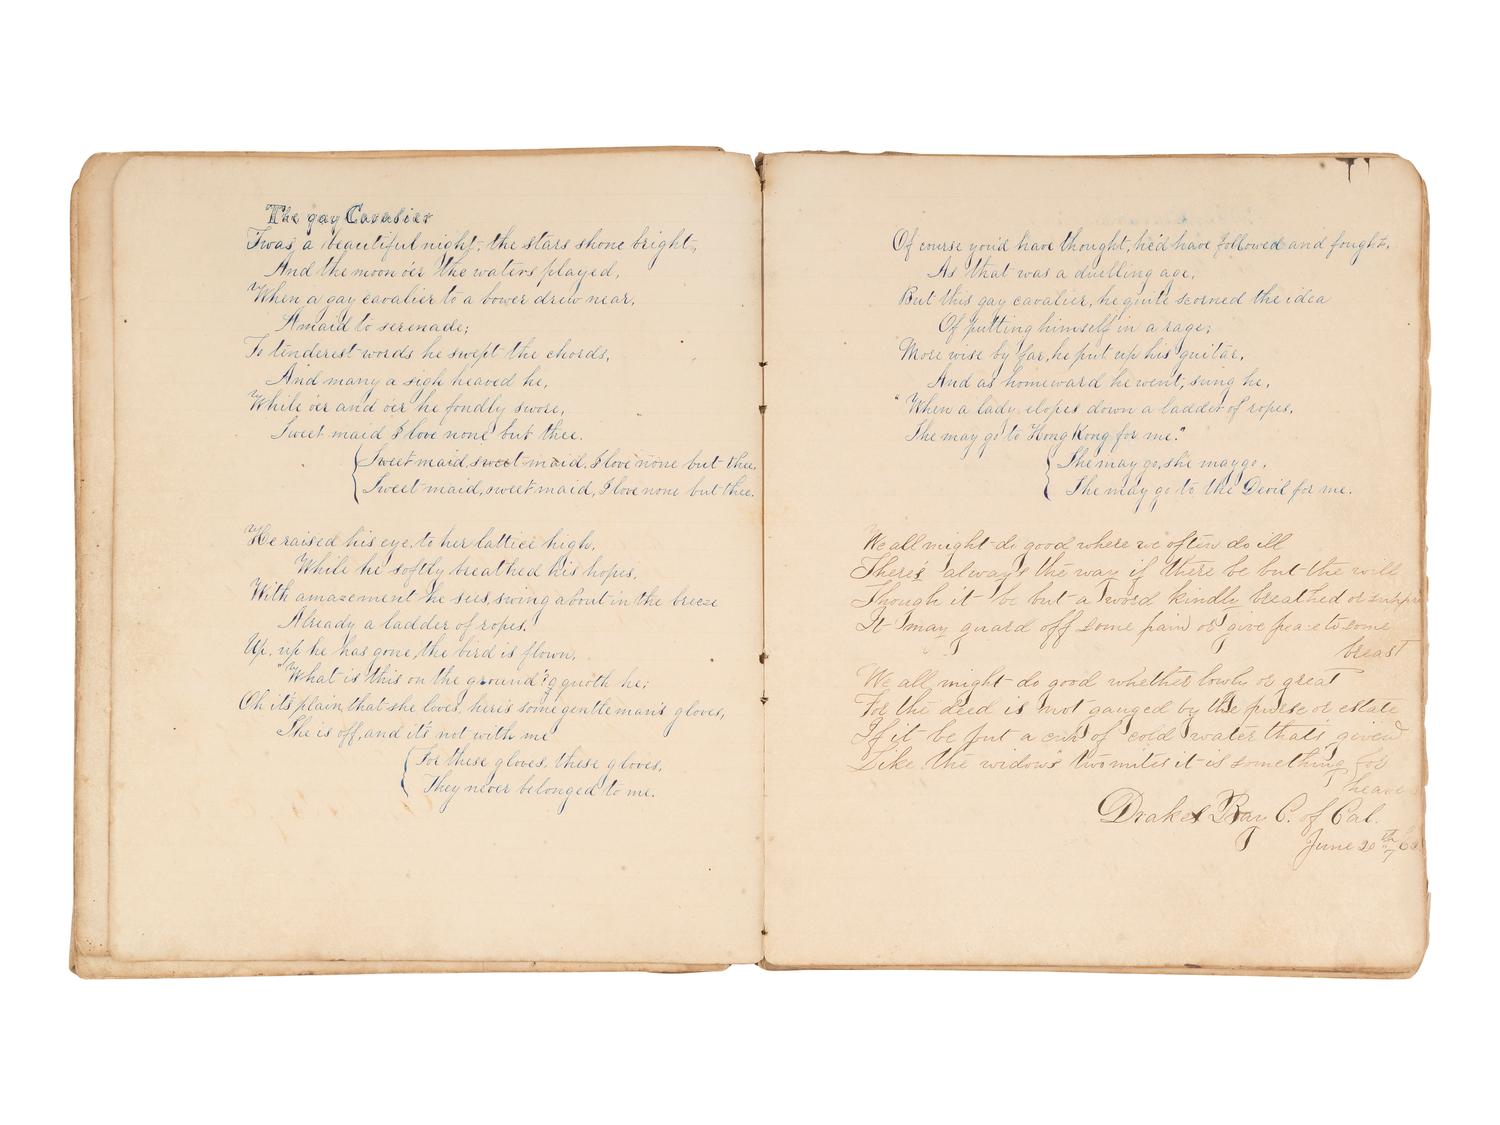 The gay Cavalier
Twas a beautiful night, the stars shone bright,
And the moon o'er the waters played,
When a gay cavalier to a bower drew near,
A maid to serenade;
To tenderest words he swept the chords,
And many a sigh heaved he,
While o'er and o'er he fondly swore,
Sweet maid I love none but thee.
Sweet maid, sweet maid, I love none but thee,
Sweet maid, sweet maid, I love none but thee.
He raised his eye, to her lattice high,
While he softly breathed his hopes,
With amazement he sees, swing about in the breeze
Already a ladder of ropes.
Up, up he has gone, the bird is flown,
"What is this on the ground?" quoth he;
Oh it's plain, that she loves, here's some gentleman's gloves,
She is off, and it's not with me
For these gloves, these gloves,
They never belonged to me.
Of course you'd have thought, he'd have followed and fought,
As that was a duelling age,
But this gay cavalier, he quite scorned the idea
Of putting himself in a rage;
More wise by far, he put up his guitar,
And as homeward he went, sung he,
"When a lady elopes down a ladder of ropes,
She may go to Hong Kong for me."
She may go, she may go,
She may go to the Devil for me.
We all might do good where we often do ill
There's always the way if there be but the will
Though it be but a word kindly breathed or
It may guard off some pain or give peace to some
breast
We all might do good whether lowly or great
For the deed is not gauged by the purse or estate
If it be but a cup of cold water that's given
Like the widow's two mites it is something for
heaven
Drakes Bay C. of Cal.
June 20th